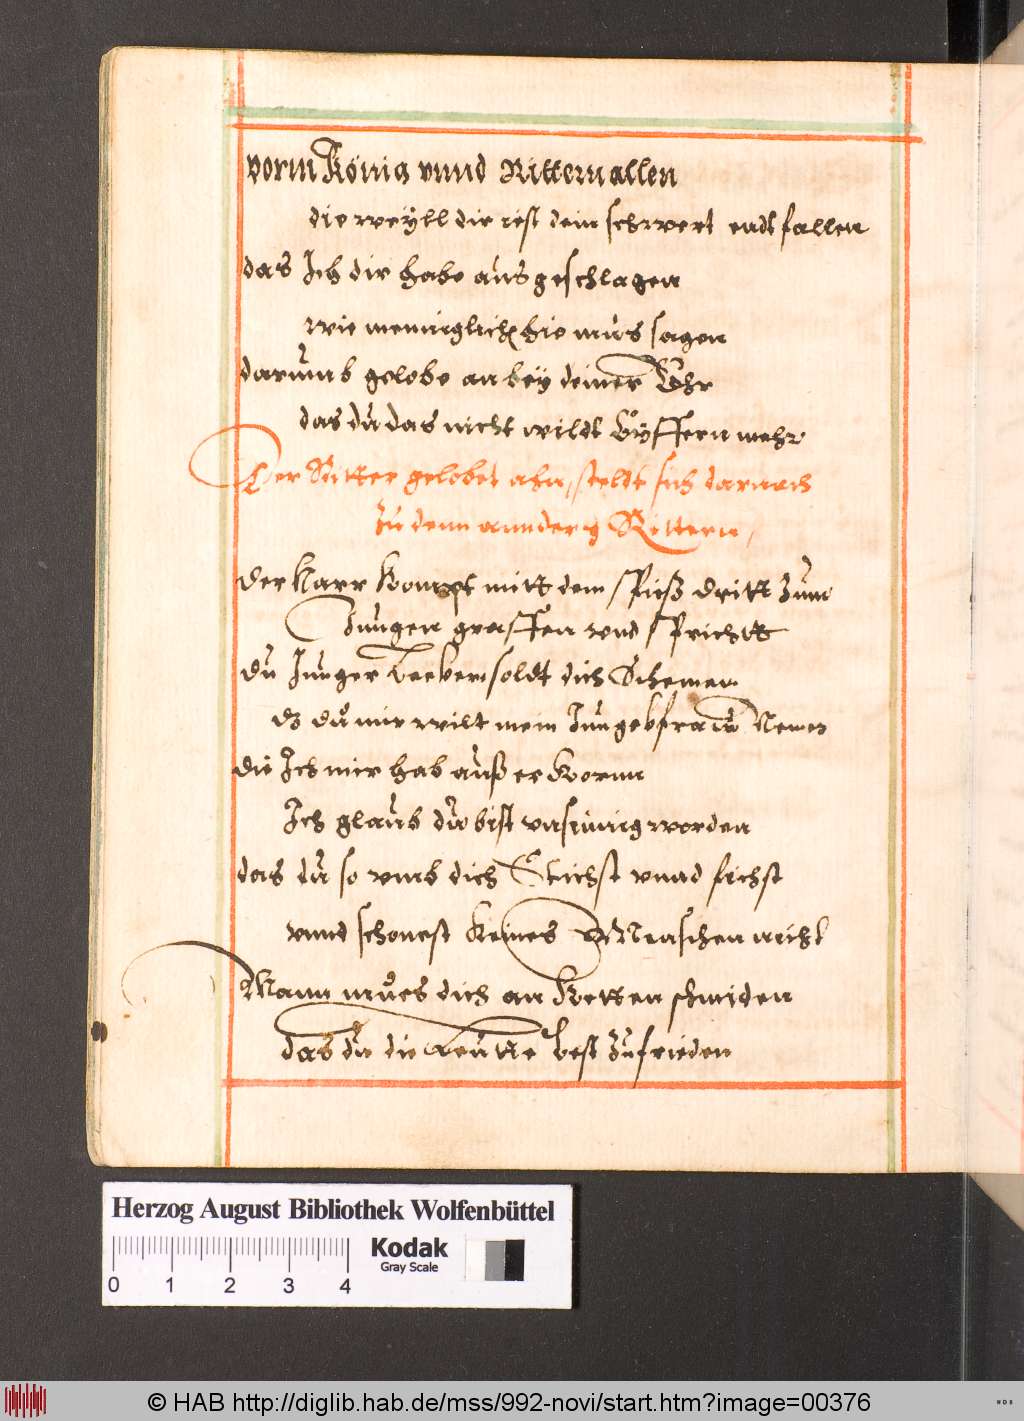 vorm König vnnd Rittern allen
die weÿll dir ist dein schwert endtfallen
das Ich dir habe ausgeschlagen
wie menniglich hie mus sagen
darumb gelobe an beÿ deiner Ehr
das du das nicht wildt Eÿffern mehr
Der Ritter gelobet ahn, steldt sich darnach
zu denn anndern Rittern,
Der Narr kompt mitt dem spieß dritt zum
Jungen graffen vnd sprichtt
du Junger Lecker soldt dich Schemen
dz du mir wilt mein Jungckfraw Nemen
die Ich mir hab außerkornn
Ich glaub du bist vnsinnig worden
das du so vmb dich Stichst vnnd fichst
vnnd schonest keines Menschen nicht
Mann mues dich an Ketten schmiden
das du die Leutte lest zufrieden
Herzog August Bibliothek Wolfenbüttel
Kodak
Gray Scale
0 1 2 3 4
© HAB http://diglib.hab.de/mss/992-novi/start.htm?image=00376